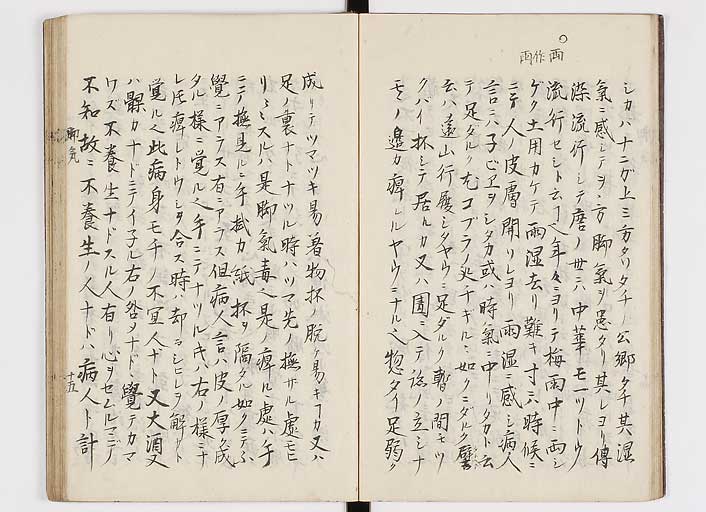 雨作両
シカハナニガ上ミ方タリタチノ公郷タチ其湿
氣ニ感シテヲ方脚氣ヲ患タリ其レヨリ傳
染流行シテ唐ノ世ハ中華モ一ツトウ
流行セシト云ヘ年々ニヨリテ梅雨中ニ雨シ
ゲク土用カケテ雨湿去リ難キ寸ハ時候ニ
ニテ人ノ皮膚開リレヨリ雨湿ニ感シ病人
言ニハ子ビヱヲシタカ或ハ時氣ニ中リタカト云
テ足タルク
云ハ遠山行履シタヤウニ足ダルク暫ノ間モツ
クバイ杯シテ居ルカ又ハ圊ニ入テ
モヽノ邉カ痺ルヤウニナル惣タイ足弱ク
成リテツマツキ易着物杯ノ脱ケ易キフカ又ハ
足ノ裏ナトナツル時ハツマ先ノ撫サル虚モヒ
リヽスルハ是脚氣毒ヘ是ノ痺ルニ虚ハ手
ニテ撫見ルニ手拭カ紙杯ヲ隔タル如クニテ
覺ニアラス右ニアラス但病人言ハ皮ノ厚ク成
タル様ニ覚ル手ニテナツル片ハ右ノ様ニナ
レ痺レトウシヲ合ス時ハ却
覚ル此病身モチノ不宜人ナト又大酒又
ハ髁カナドニテイ子ル右ノ咎ノナド覺テカマ
ワズ不養生ナドスル人有リ心ヲセムルマデノ
不知故ニ不養生ノ人ナドハ病人ト計
脚気
十五